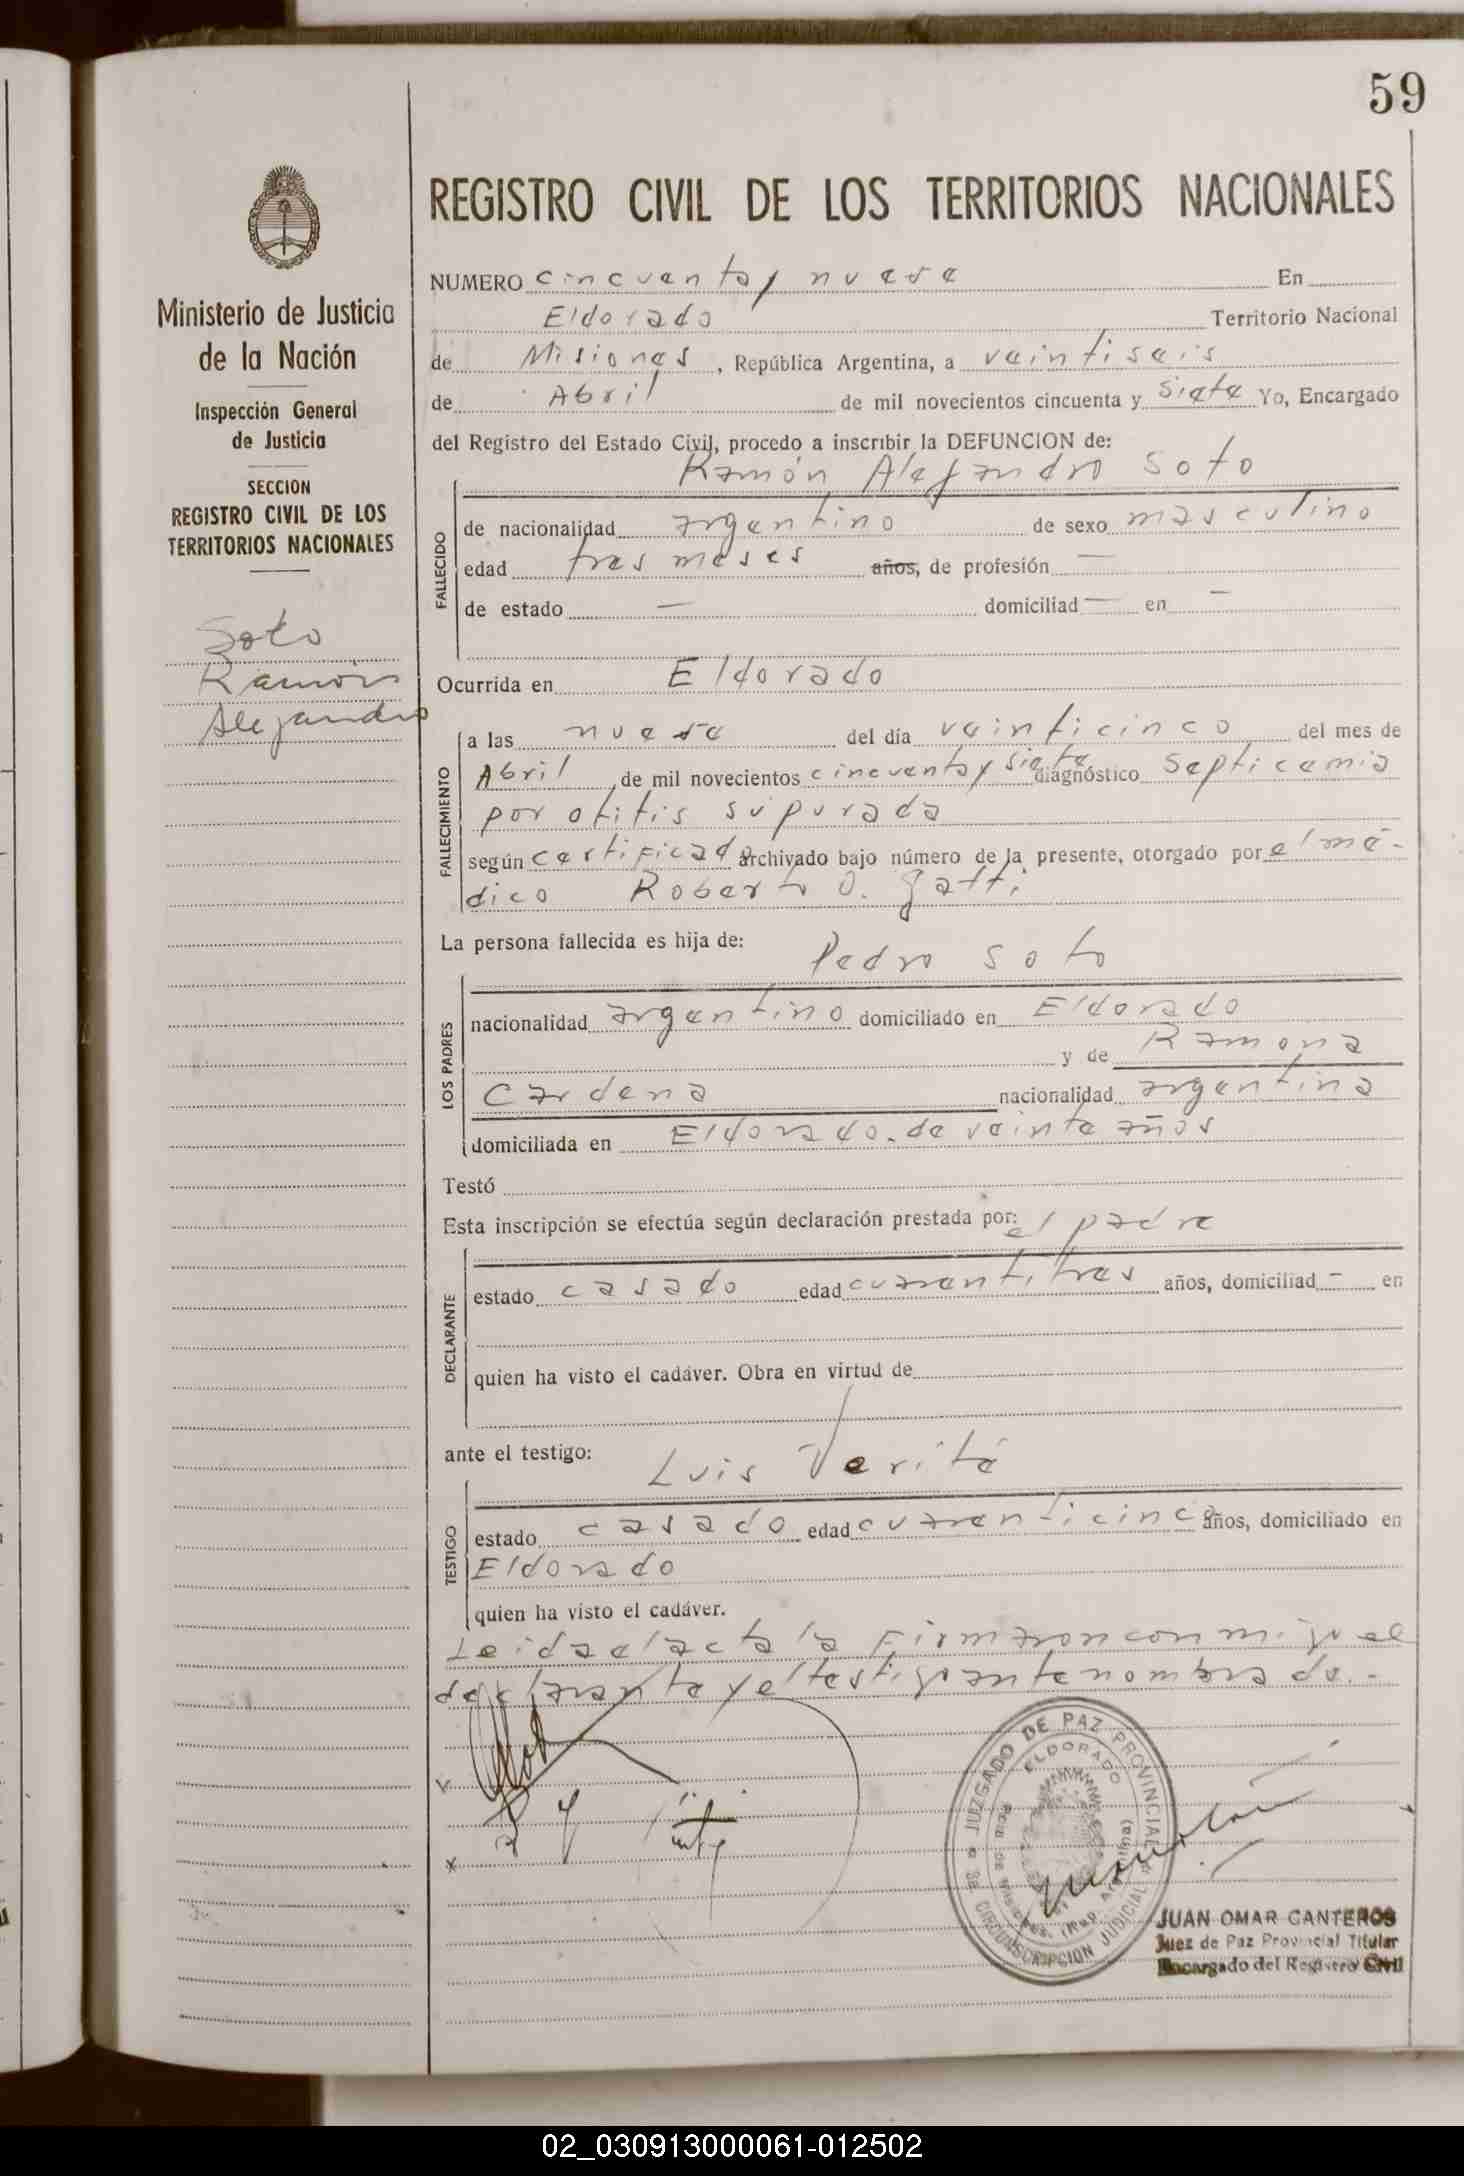 59
REGISTRO CIVIL DE LOS TERRITORIOS NACIONALES
Ministerio de Justicia
de la Nación
Inspección General
de Justicia
SECCION
REGISTRO CIVIL DE LOS
TERRITORIOS NACIONALES
Soto
Ramón
Alejandro
NUMERO cincuenta y nueve En
Eldorado Territorio Nacional
de Misiones, República Argentina, a veintiseis
de Abril de mil novecientos cincuenta y siete Yo, Encargado
del Registro del Estado Civil, procedo a inscribir la DEFUNCION de:
Ramón Alejandro Soto
FALLECIDO
de nacionalidad argentino de sexo masculino
edad tres meses años, de profesión —
de estado — domiciliad — en —
Ocurrida en Eldorado
FALLECIMIENTO
a las nueve del día veinticinco del mes de
Abril de mil novecientos cincuenta y siete diagnóstico Septicemia
por otitis supurada
según certificado archivado bajo número de la presente, otorgado por el mé-
dico Roberto O. Gatti
La persona fallecida es hija de:
Pedro Soto
LOS PADRES
nacionalidad argentino domiciliado en Eldorado
y de Ramona
Cardena nacionalidad argentina
domiciliada en Eldorado. de veinte años
Testó
Esta inscripción se efectúa según declaración prestada por: el padre
DECLARANTE
estado casado edad cuarentitres años, domiciliad – en
quien ha visto el cadáver. Obra en virtud de
ante el testigo:
Luis Verité
TESTIGO
estado casado edad cuarenticinco años, domiciliado en
Eldorado
quien ha visto el cadáver.
Leida el acta la firmaron conmigo el
declarante y el testigo antenombrado.-
JUZGADO DE PAZ PROVINCIAL
ELDORADO
Pcia. de Misiones. (Rep. Argentina)
3a. CIRCUNSCRIPCION JUDICIAL
JUAN OMAR CANTEROS
Juez de Paz Provincial Titular
Encargado del Registro Civil
02_030913000061-012502